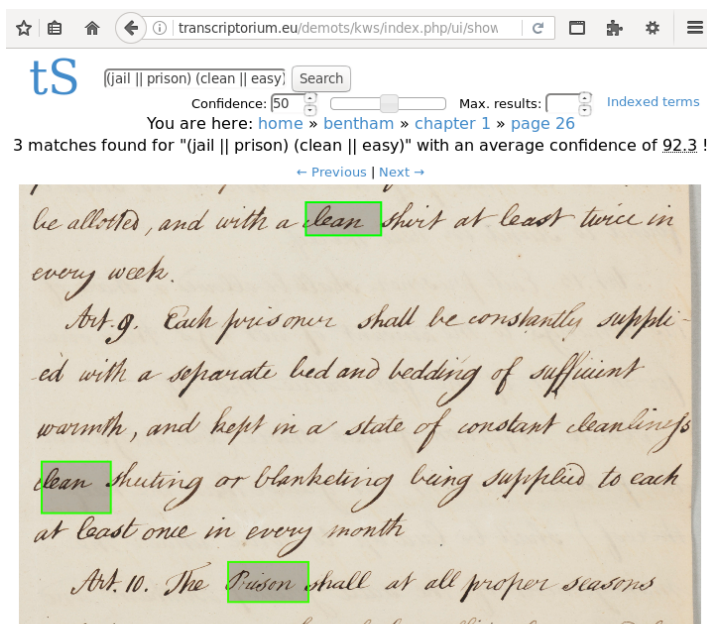 transcriptorium.eu/demots/kws/index.php/ui/show
tS
(jail || prison) (clean || easy) Search
Confidence: 50 Max. results: Indexed terms
You are here: home » bentham » chapter 1 » page 26
3 matches found for "(jail || prison) (clean || easy)" with an average confidence of 92.3 !
← Previous | Next →
be allotted, and with a clean shirt at least twice in
every week.
Art. 9. Each prisoner shall be constantly suppli-
ed with a separate bed and bedding of sufficient
warmth, and kept in a state of constant cleanliness
clean sheeting or blanketing being supplied to each
at least once in every month
Art. 10. The Prison shall at all proper seasons